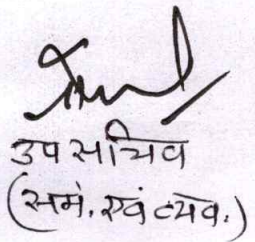 उप सचिव
(सम. एवं व्येव.)